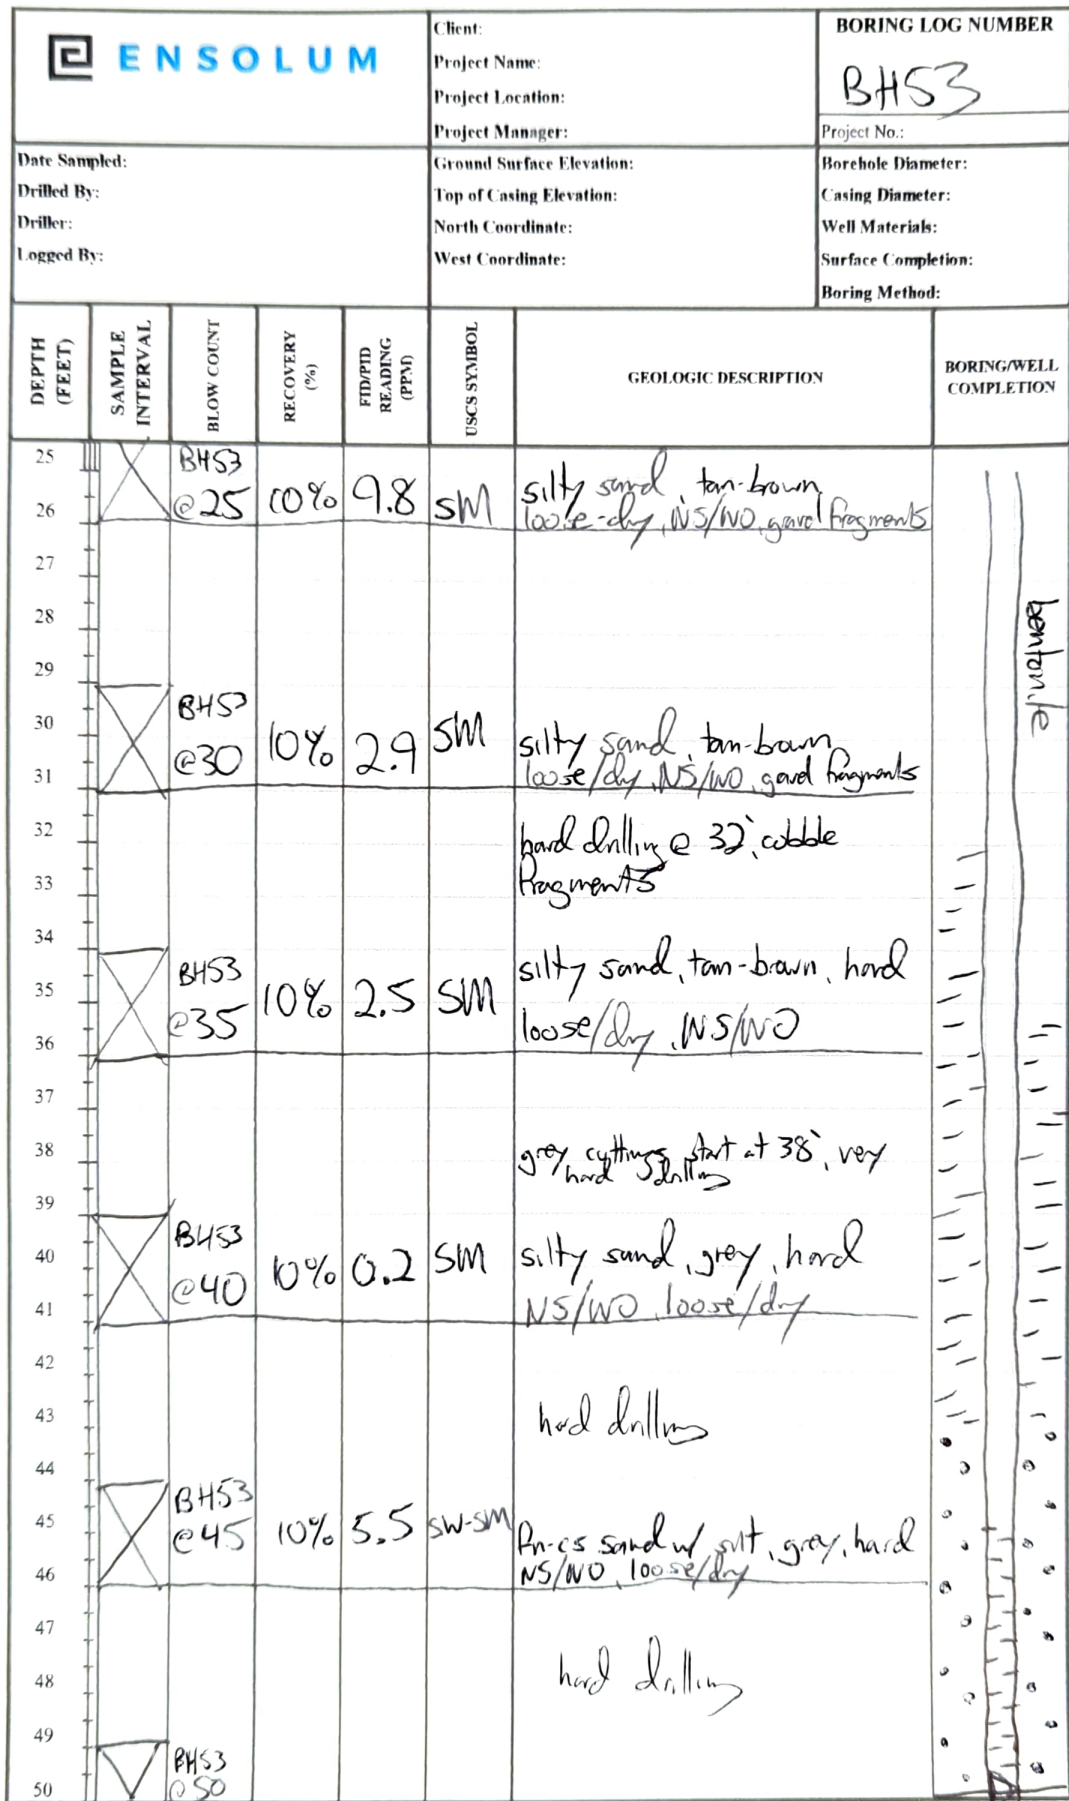 ENSOLUM
Client:
Project Name:
Project Location:
Project Manager:
BORING LOG NUMBER
BH53
Project No.:
Date Sampled:
Drilled By:
Driller:
Logged By:
Ground Surface Elevation:
Top of Casing Elevation:
North Coordinate:
West Coordinate:
Borehole Diameter:
Casing Diameter:
Well Materials:
Surface Completion:
Boring Method:
DEPTH
(FEET)
SAMPLE
INTERVAL
BLOW COUNT
RECOVERY
(%)
FID/PID
READING
(PPM)
USCS SYMBOL
GEOLOGIC DESCRIPTION
BORING/WELL
COMPLETION
25
BH53
@25 10% 9.8 SM silty sand, tan-brown
26
loose-dry, NS/NO, gravel fragments
27
28
bentonite
29
BH53
30
@30 10% 2.9 SM silty sand, tan-brown
31
loose/dry, NS/NO, gravel fragments
32
hard drilling @ 32', cobble
33
fragments
34
BH53
35
@35 10% 2.5 SM silty sand, tan-brown, hard
loose/dry, NS/NO
36
37
38
grey cuttings start at 38', very
hard drilling
39
BH53
40
@40 10% 0.2 SM silty sand, grey, hard
41
NS/NO, loose/dry
42
43
hard drilling
44
BH53
45
@45 10% 5.5 SW-SM fn-cs sand w/ silt, grey, hard
46
NS/NO, loose/dry
47
48
hard drilling
49
BH53
50
@50